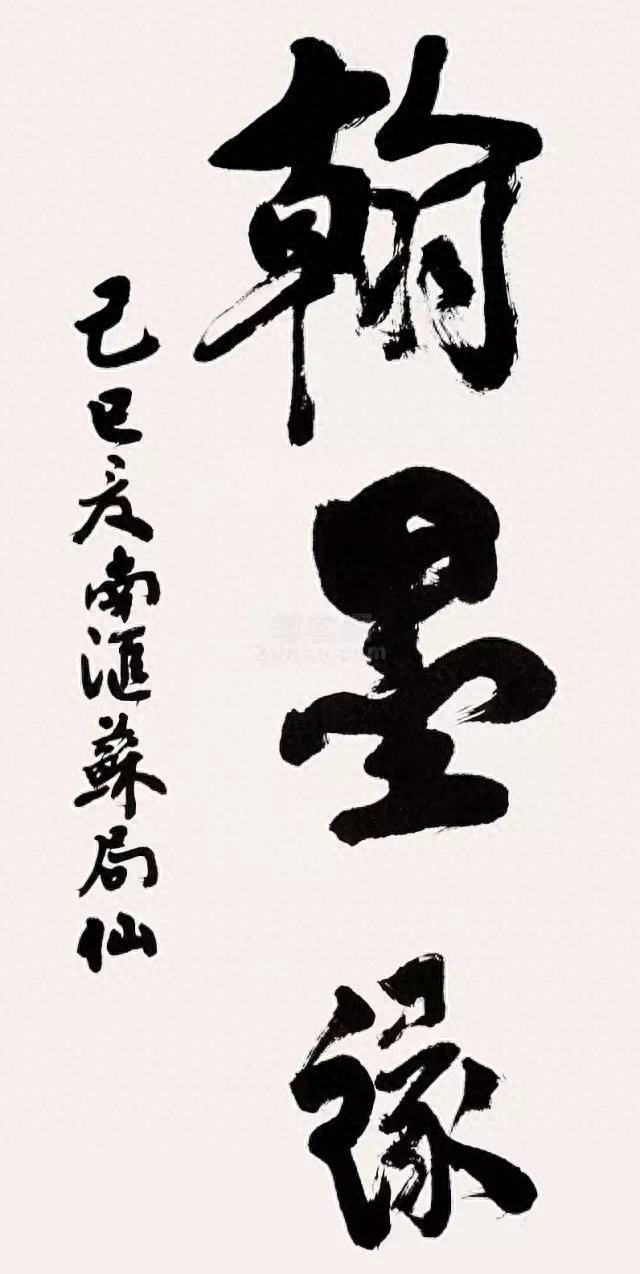 翰墨缘
己巳夏南滙蘇局仙